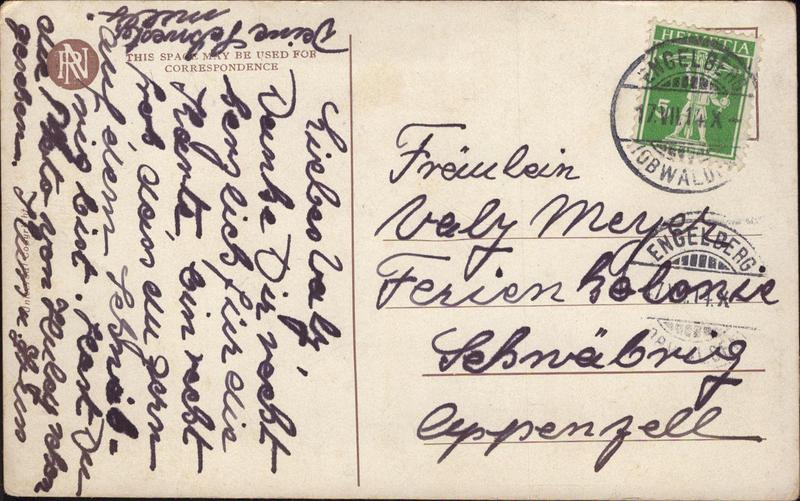 THIS SPACE MAY BE USED FOR
CORRESPONDENCE
Liebes Valy,
Danke Dir recht
herzlich für die
Karte, bin recht
froh dass du gern
auf dem Schwäb-
rig bist. Hast Du
ein Photo von schon
gesehen.
Deine Schwester
HELVETIA
5
ENGELBERG
17.VII.14.X
(OBWALDEN)
Fräulein
Valy Meyer
Ferienkolonie
Schwäbrig
Appenzell
ENGELBERG